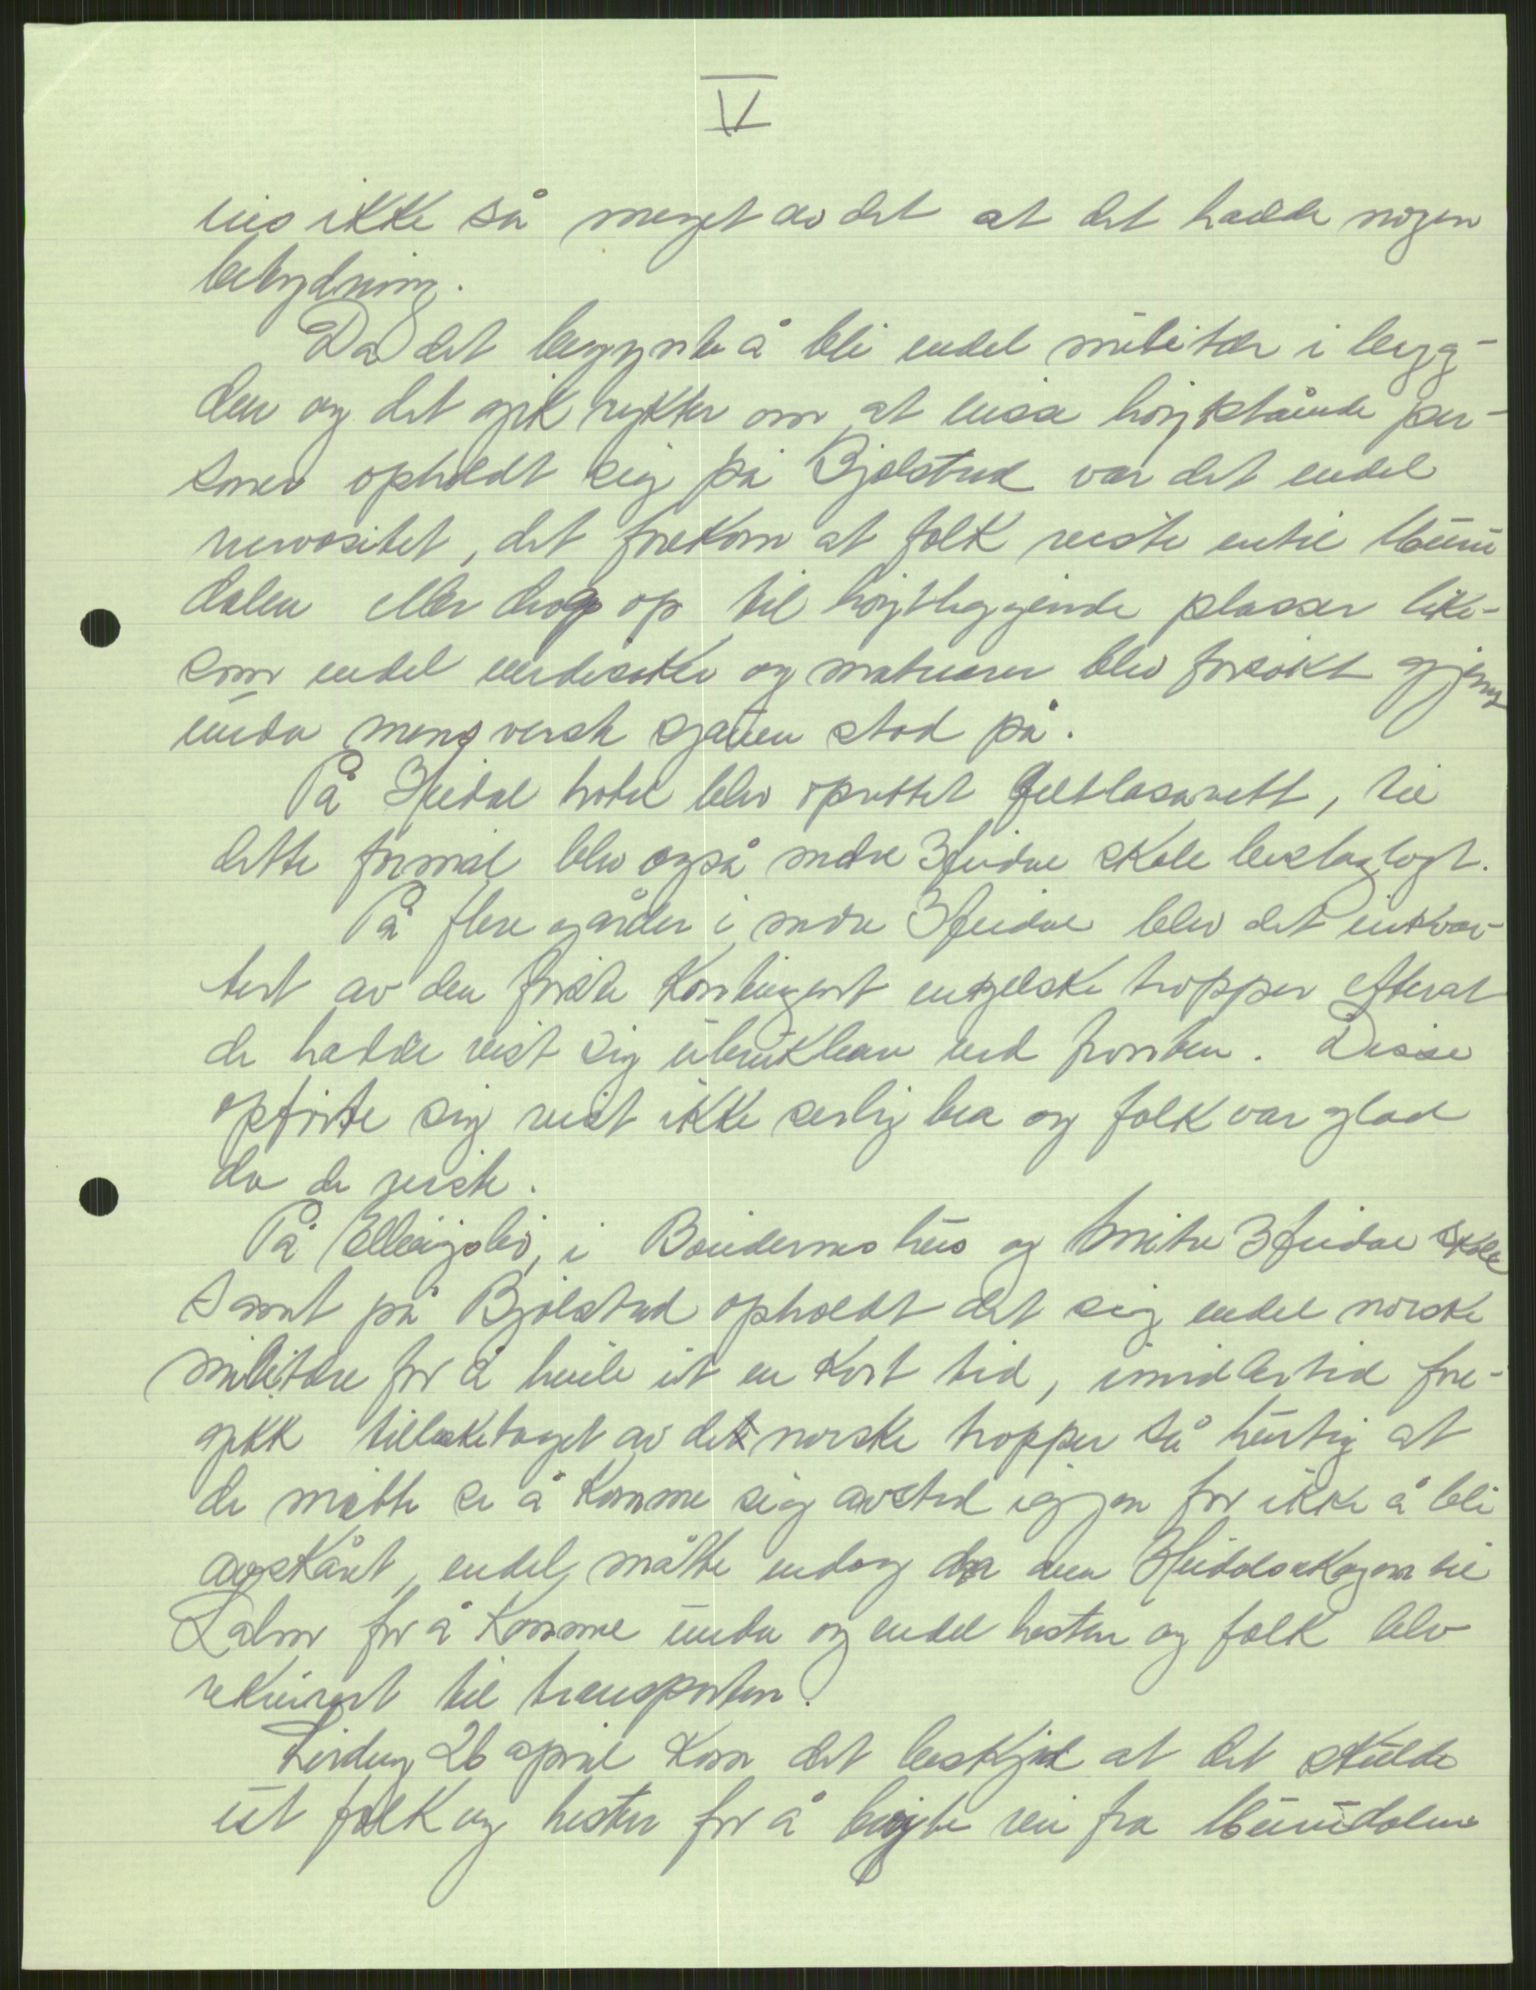 V
vis ikke så meget av det at det hadde nogen
betydning.
Da det begynte å bli endel militær i byg-
den og det gik rykter om at visse høytstående per-
soner opholdt sig på Bjølstad var det endel
nervøsitet, det forekom at folk reiste intil Muru
dalen eller drog op til højtliggende plasser like-
som endel verdisaker og matvarer blev forsøkt gjemt
unda mens verste sjauen stod på.
På Heidal hotel blev oprettet feltlasarett, til
dette formål blev også nedre Heidal skole beslaglagt.
På flere gårder i nedre Heidal blev det inkvar-
tert av den første kontingent engelske tropper efterat
de hadde vist sig ubrukbare ved fronten. Disse
opførte sig vist ikke serlig bra og folk var glad
da de reiste.
På Ellingsbø, i Bøndernes hus og Mitre Heidal skole
samt på Bjølstad opholdt det sig endel norske
militære for å hvile ut en kort tid, imidlertid fore-
gikk tilbaketoget av de norske tropper så hurtig at
de måtte se å komme sig avsted igjen for ikke å bli
avskåret, endel måtte endog dra over Heidalsskogen til
Lalm for å komme unda og endel hester og folk blev
rekvirert til transporten.
Lørdag 26 april kom det beskjed at det skulde
ut folk og hester for å bøite vei fra Murudalen